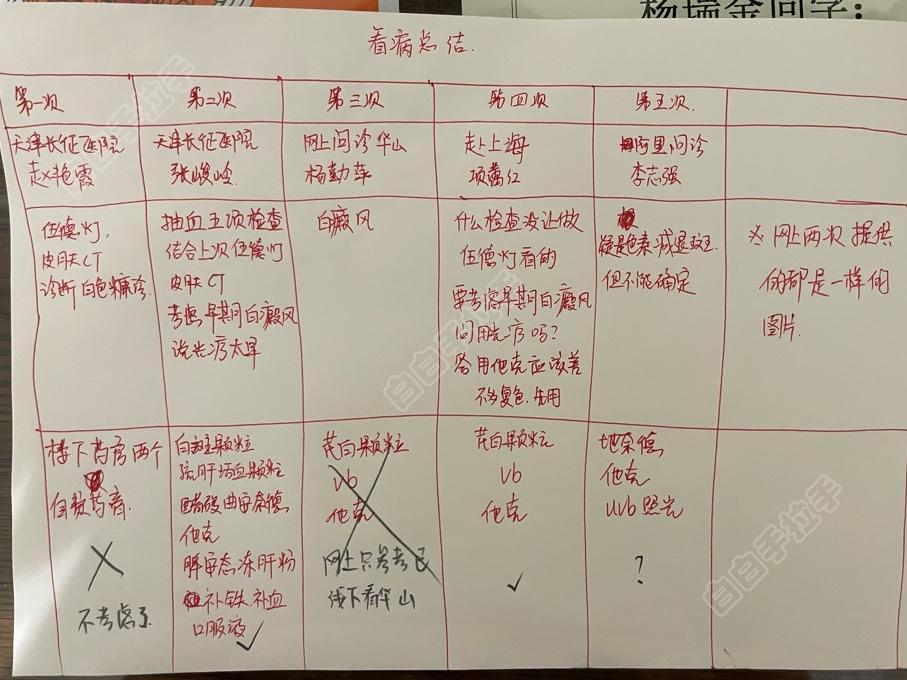 杨瑞金同学：
看病总结.
第一次
第二次
第三次
第四次
第五次
天津长征医院
赵艳霞
天津长征医院
张峻岭
网上问诊华山
杨勤萍
赴上海
项蕾红
阿里问诊
李志强
伍德灯,
皮肤CT
诊断白色糠疹.
抽血五项检查
结合上次伍德灯
皮肤CT
考虑早期白癜风
说光疗太早
白癜风
什么检查没让做
伍德灯看的
要考虑早期白癜风
问用光疗吗?
答用他克应该差
不多复色.先用
疑是色素减退斑
但不能确定
※网上两次提供
的都是一样的
图片.
楼下药房两个
自费药膏.
×
不考虑了
白斑颗粒
疏肝活血颗粒
醋酸曲安奈德
他克
脾安态冻肝粉
补铁.补血
口服液
✓
芪白颗粒
Vb
他克
网上只参考已
线下看华山
芪白颗粒
Vb
他克
✓
地奈德
他克
uvb照光
?
白白手拉手
白白手拉手
白白手拉手
白白手拉手
白白手拉手